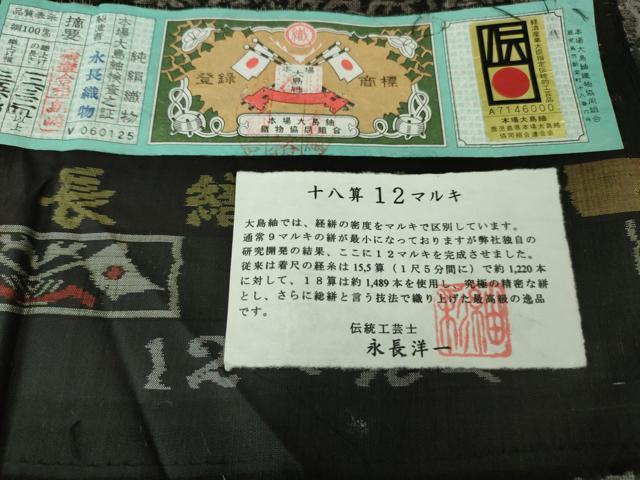 品質表示
絹100%
摘要
本場大島紬検査之証
純絹織物
永長織物
V 060125
登録
商標
本場
大島紬
本場大島紬
織物協同組合
伝
経済産業大臣指定伝統的工芸品
A7146000
本場大島紬
鹿児島県本場大島紬
協同組合連合会
本場大島紬織物協同組合
長
十八算 12マルキ
大島紬では、経絣の密度をマルキで区別しています。
通常9マルキの絣が最小になっておりますが弊社独自の
研究開発の結果、ここに12マルキを完成させました。
従来は着尺の経糸は15,5算（1尺5分間に）で約1,220本
に対して、18算は約1,489本を使用し、究極の精密な絣
とし、さらに総絣と言う技法で織り上げた最高級の逸品
です。
伝統工芸士
永長洋一
12